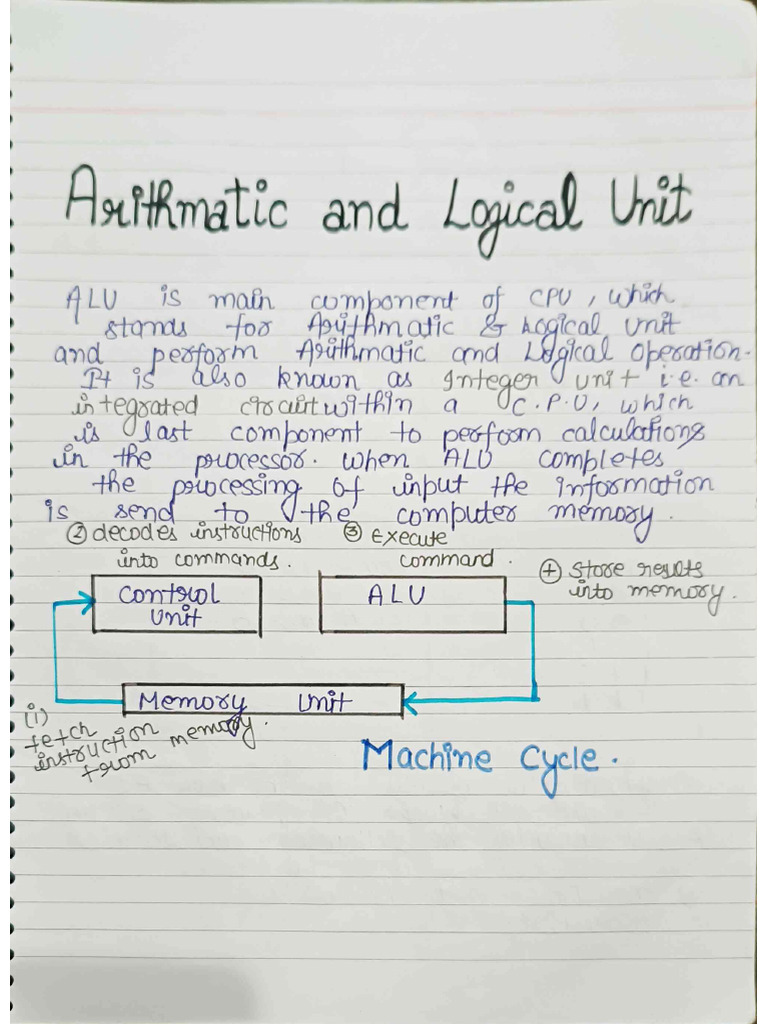 Arithmatic and Logical Unit
ALU is main component of CPU, which
stands for Arithmatic & Logical Unit
and perform Arithmatic and Logical Operation.
It is also known as Integer unit i.e. an
integrated circuit within a C.P.U, which
is last component to perform calculations
in the processor. when ALU completes
the processing of input the information
is send to the computer memory.
② decodes instructions
into commands.
③ Execute
command.
④ store results
into memory.
Control
Unit
ALU
Memory Unit
(i)
fetch
instruction
from memory.
Machine Cycle.